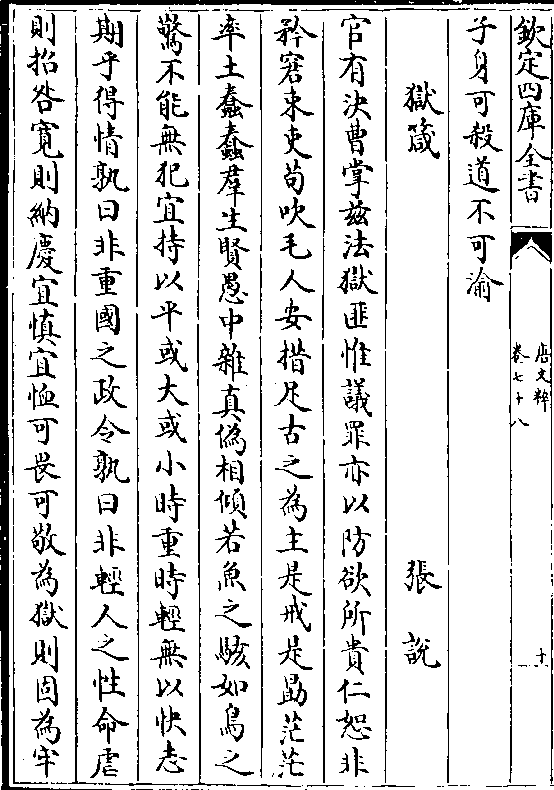 欽定四庫全書
唐文粹
卷七十八
十一
子身可殺道不可渝
獄箴
張說
官有決曹掌兹法獄匪惟議罪亦以防欲所貴仁恕非
矜窘束吏苟吹毛人安措足古之為主是戒是勗茫茫
率土蠢蠢羣生賢愚中雜真偽相傾若魚之駭如鳥之
驚不能無犯宜持以平或大或小時重時輕無以快志
期乎得情孰曰非重國之政令孰曰非輕人之性命虐
則招咎寛則納慶宜慎宜恤可畏可敬為獄則固為牢